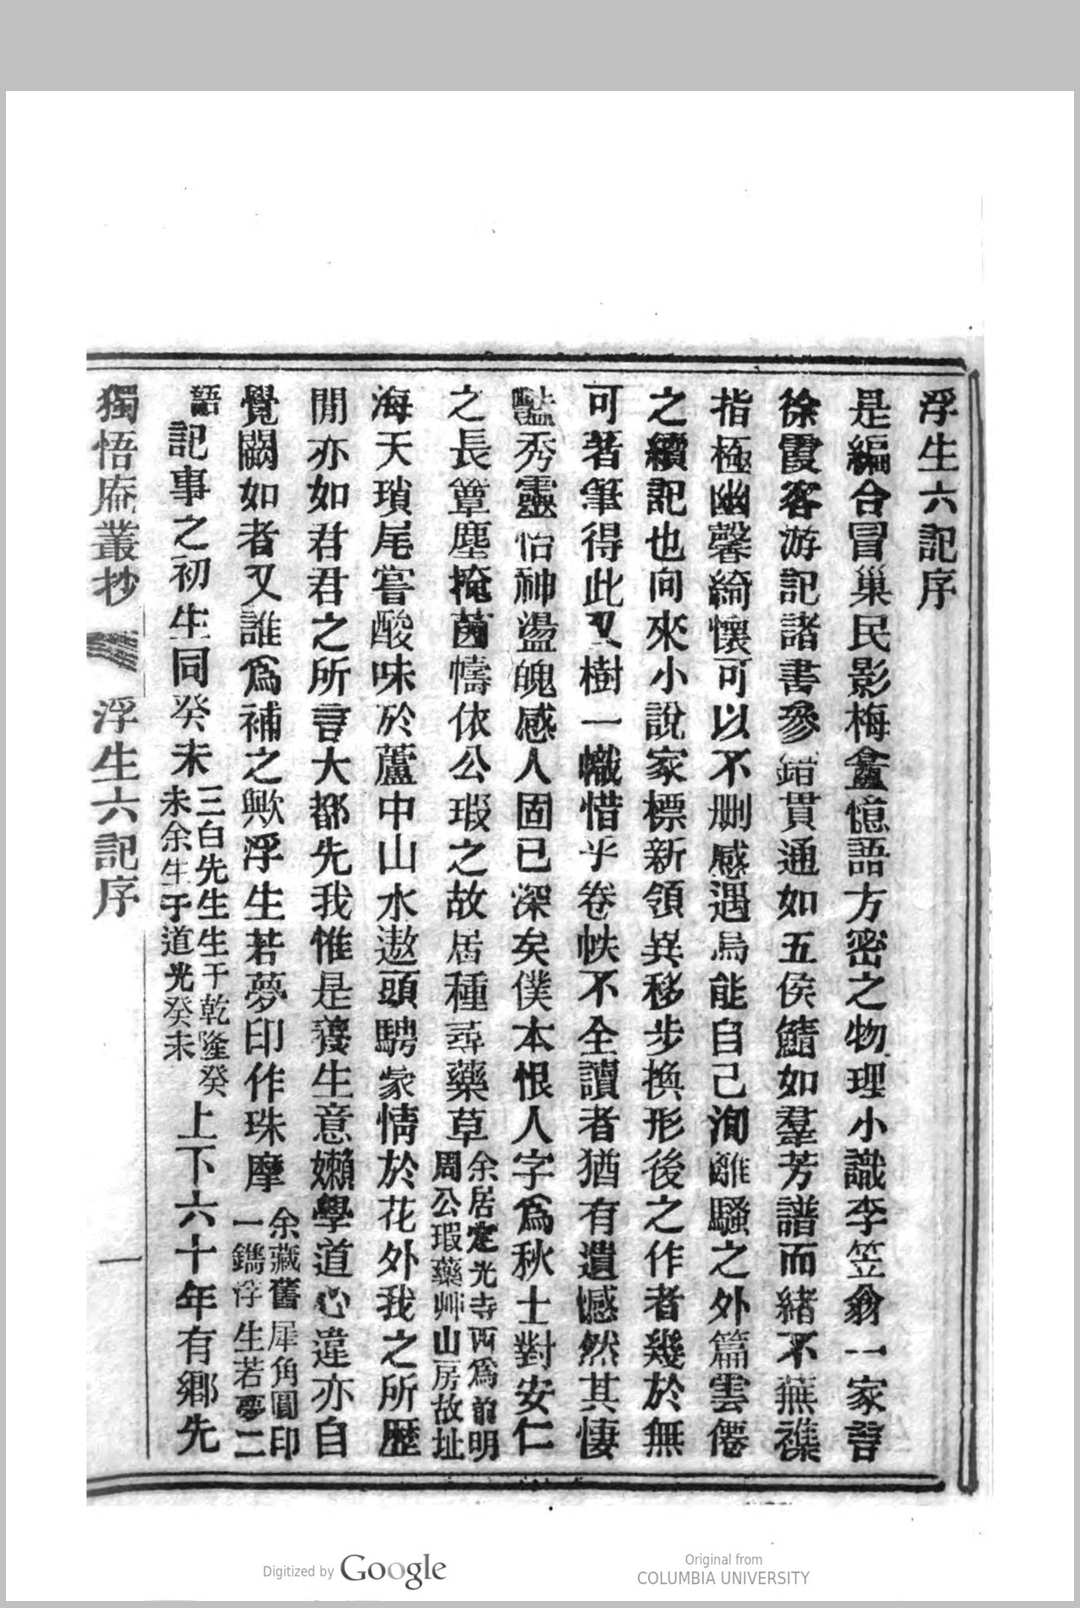 浮生六記序
是編合冒巢民影梅盦憶語方密之物理小識李笠翁一家言
徐霞客游記諸書參錯貫通如五侯鯖如羣芳譜而緒不蕪襍
指極幽馨綺懷可以不刪感遇烏能自己洵離騷之外篇雲僊
之續記也向來小說家標新領異移步換形後之作者幾於無
可著筆得此又樹一幟惜乎卷帙不全讀者猶有遺憾然其悽
豔秀靈怡神盪魄感人固已深矣僕本恨人字爲秋士對安仁
之長簟塵掩茵幬依公瑕之故居種尋藥草余居定光寺西爲前明周公瑕藥艸山房故址
海天瑣尾嘗酸味於蘆中山水遨頭騁豪情於花外我之所歷
閒亦如君君之所言大都先我惟是養生意嬾學道心違亦自
覺闕如者又誰爲補之歟浮生若夢印作珠摩余藏舊犀角圓印一鐫浮生若夢二
語記事之初生同癸未三白先生生于乾隆癸未余生于道光癸未上下六十年有鄉先
獨悟庵叢抄 浮生六記序 一
Digitized by Google
Original from
COLUMBIA UNIVERSITY